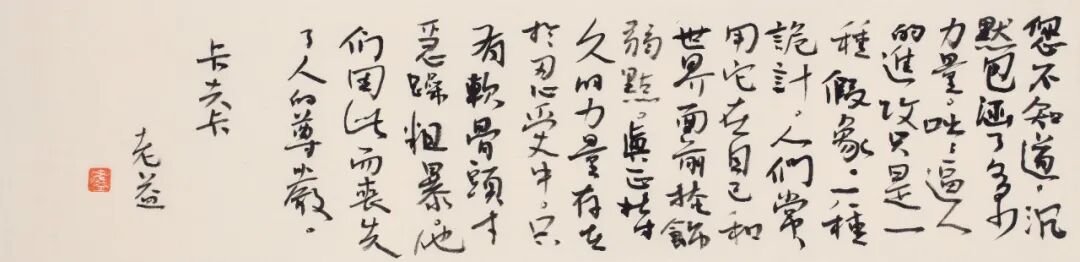 您不知道，沉
默包涵了多少
力量。咄咄逼人
的進攻只是一
種假象，一種
詭計，人們常
用它在自己和
世界面前掩飾
弱點。真正持
久的力量存在
於忍受中，只
有軟骨頭才
急躁粗暴。他
們因此而喪失
了人的尊嚴。
卡夫卡
老益